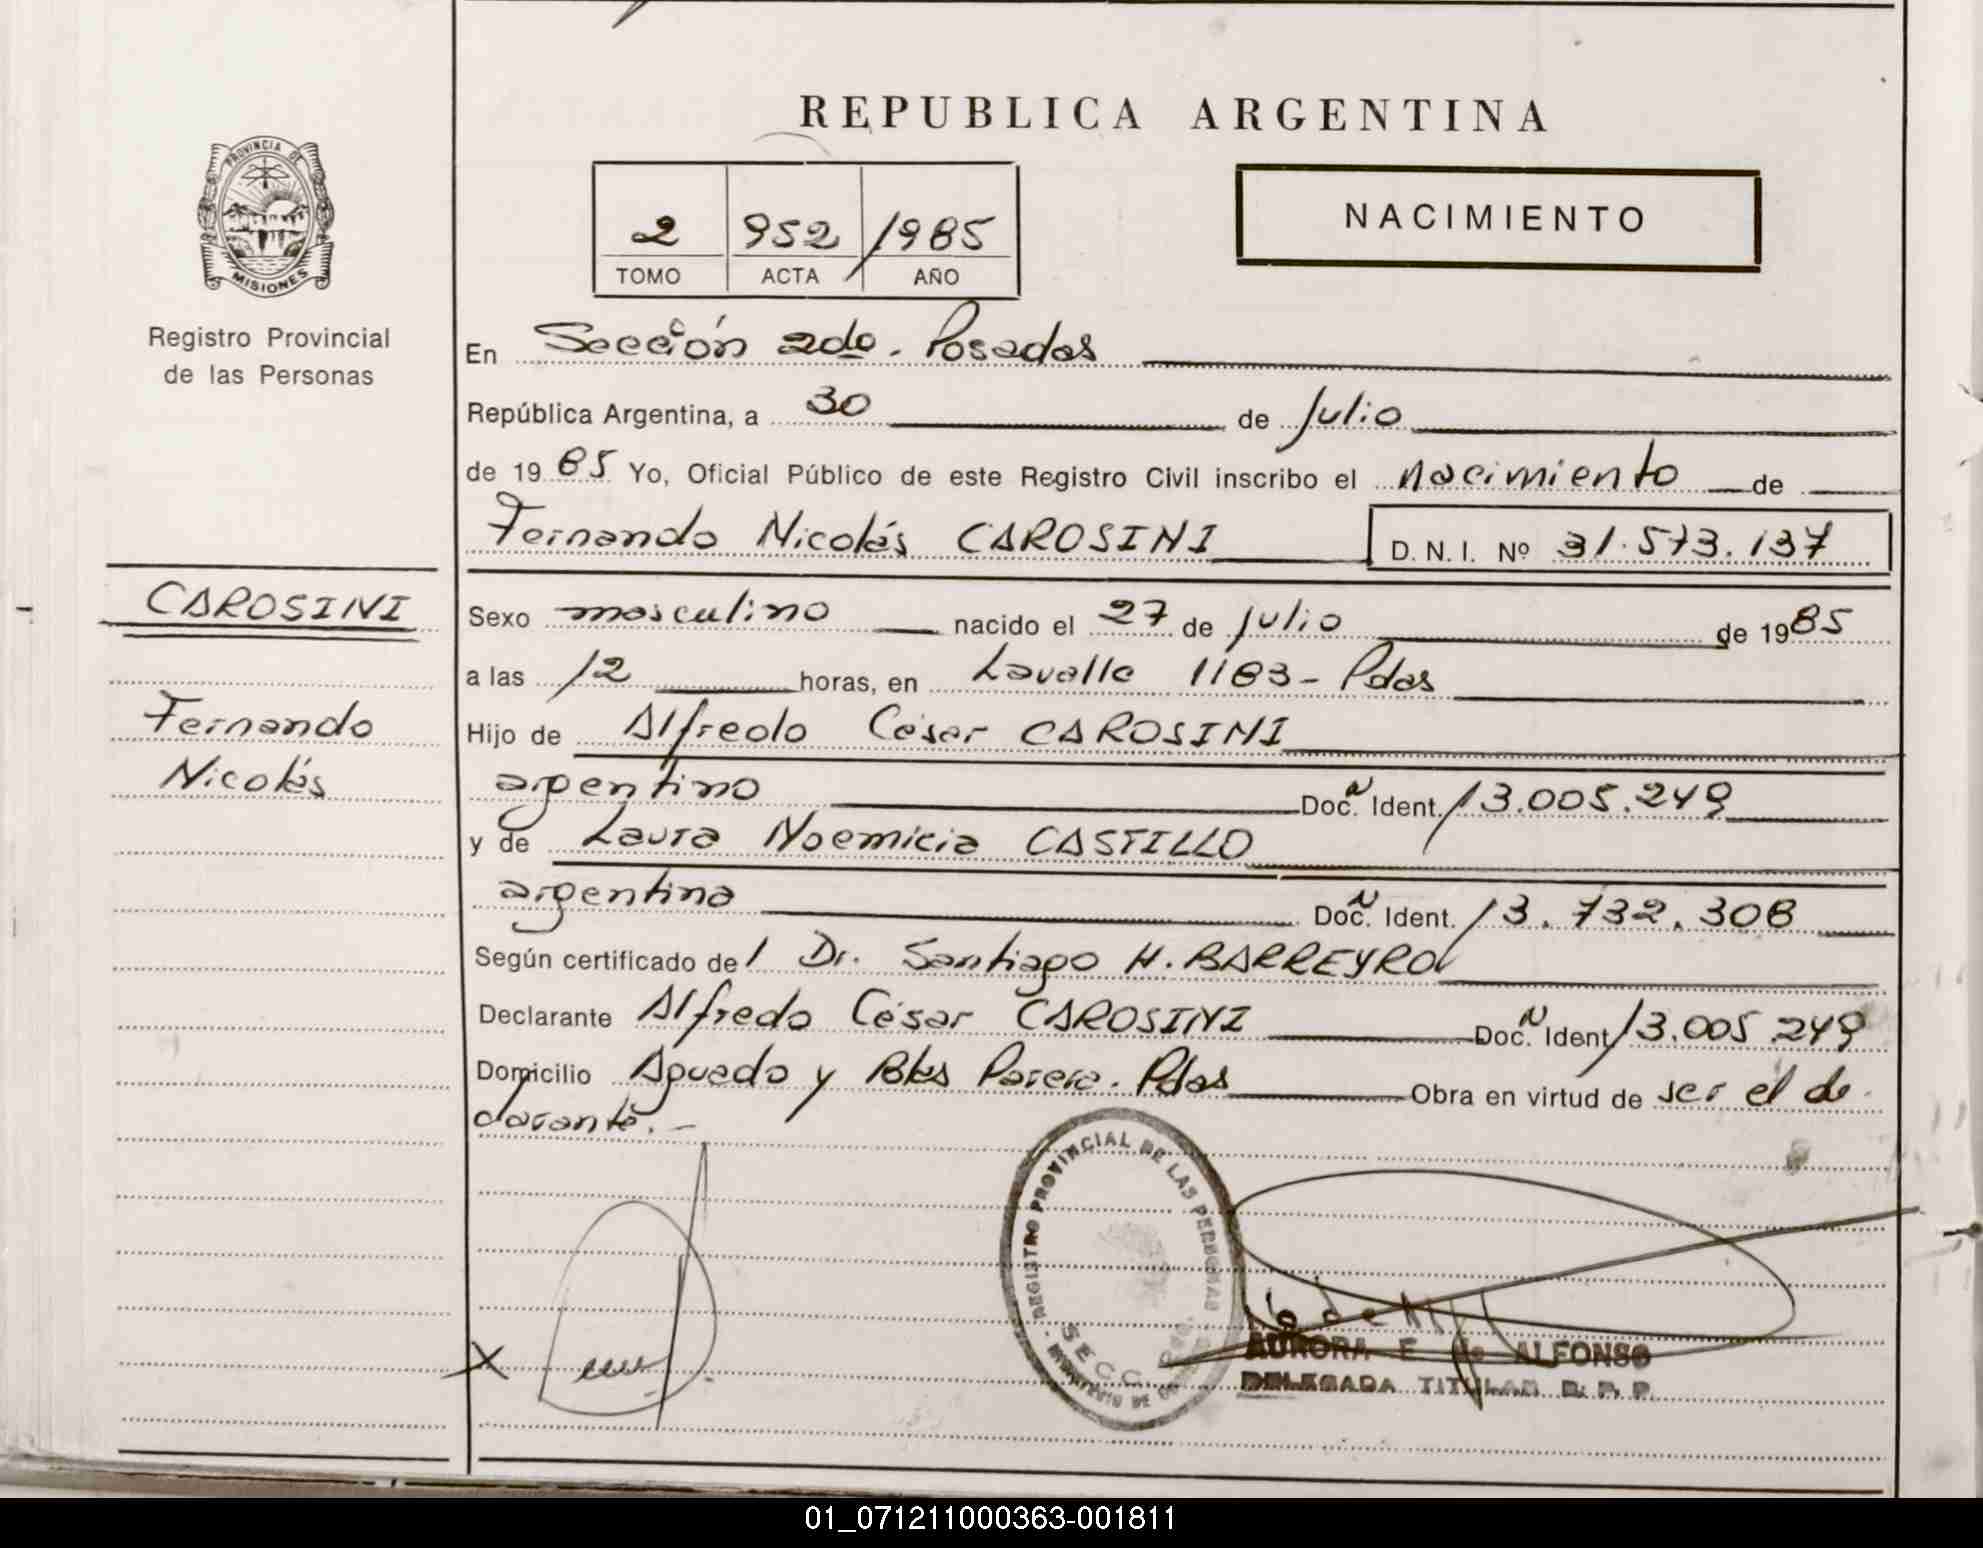 REPUBLICA ARGENTINA
PROVINCIA DE
MISIONES
Registro Provincial
de las Personas
2 952 /1985
TOMO ACTA AÑO
NACIMIENTO
En Sección 2da. Posadas
República Argentina, a 30 de Julio
de 1985 Yo, Oficial Público de este Registro Civil inscribo el nacimiento de
Fernando Nicolás CAROSINI D. N. I. Nº 31.573.137
CAROSINI
Fernando
Nicolás
Sexo masculino nacido el 27 de julio de 1985
a las 12 horas, en Lavalle 1183 - Pdas
Hijo de Alfredo César CAROSINI
argentino Doc. Ident. 13.005.249
y de Laura Noemicia CASTILLO
argentina Doc. Ident. 13.732.308
Según certificado del Dr. Santiago H. BARREYRO
Declarante Alfredo César CAROSINI Doc. Ident. 13.005.249
Domicilio Aguado y Blas Parera. Pdas Obra en virtud de ser el de
clarante. -
REGISTRO PROVINCIAL DE LAS PERSONAS
SECC.
X
AURORA E. de ALFONSO
DELEGADA TITULAR R. P. P.
01_071211000363-001811